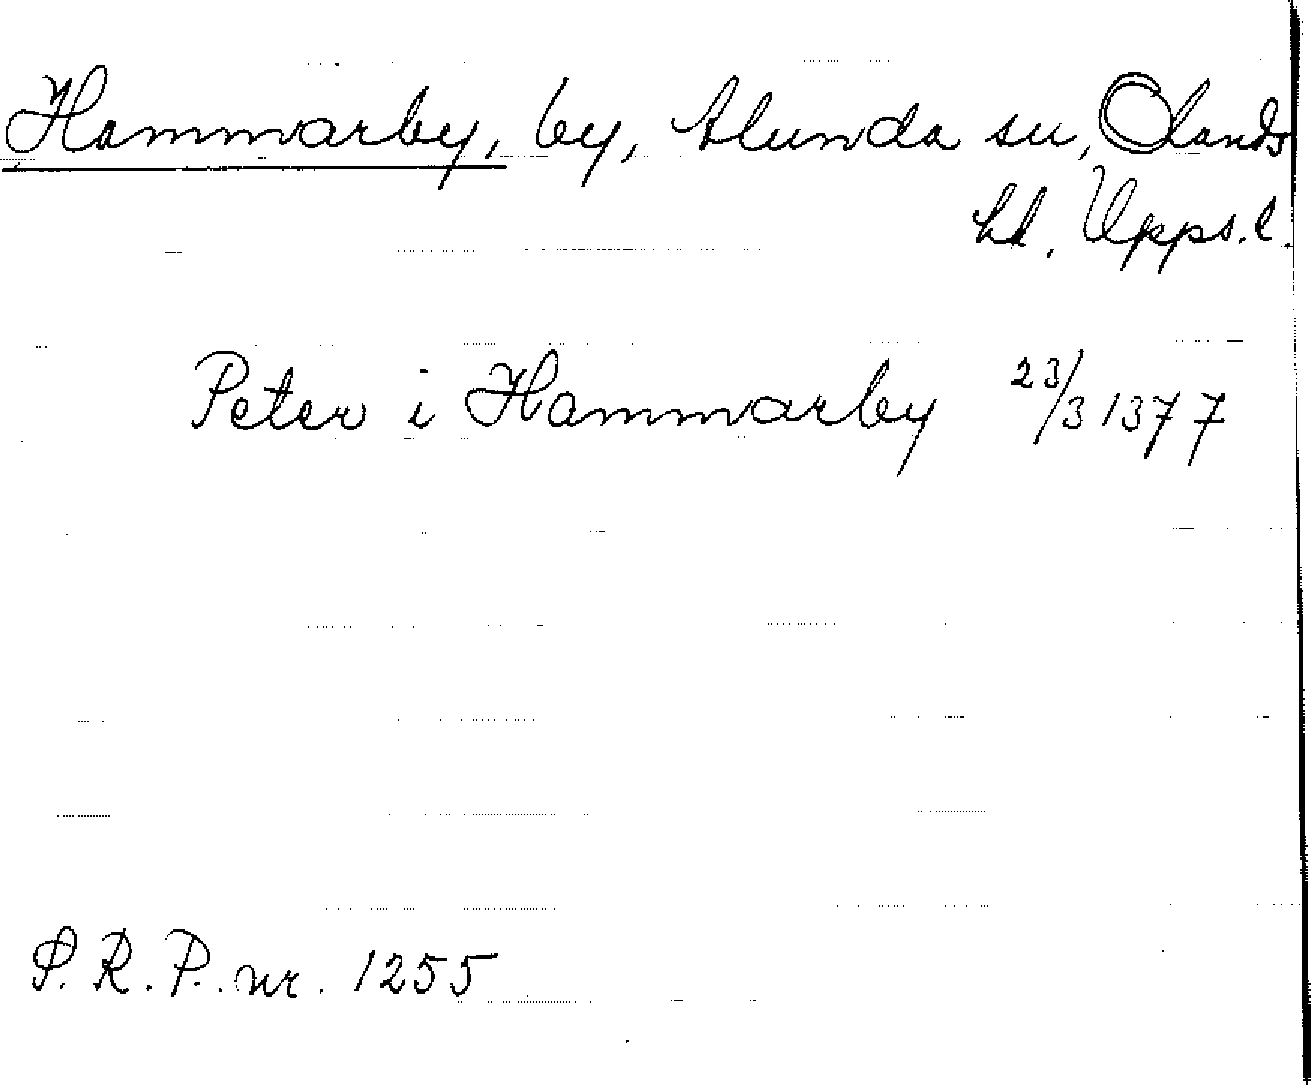 Hammarby, by, Alunda sn, Olands
hd. Upps.l.
Peter i Hammarby 23/3 1377
S.R.P. nr. 1255